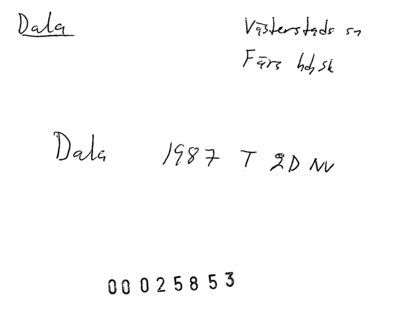 Dala
Västerstads sn
Färs hd, sk
Dala 1987 T 2D NV
00025853